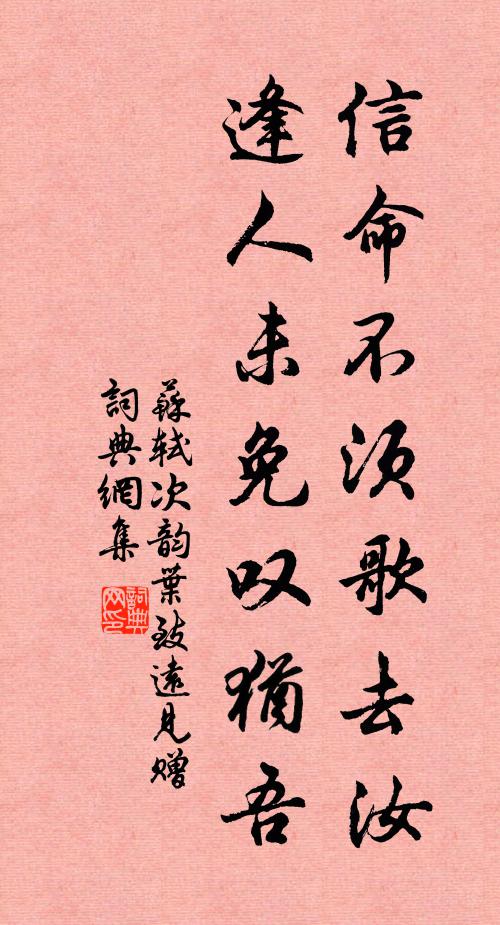 信命不須歌去汝
逢人未免叹猶吾
蘇軾次韵葉致遠見赠
詞典網集
詞典
网印